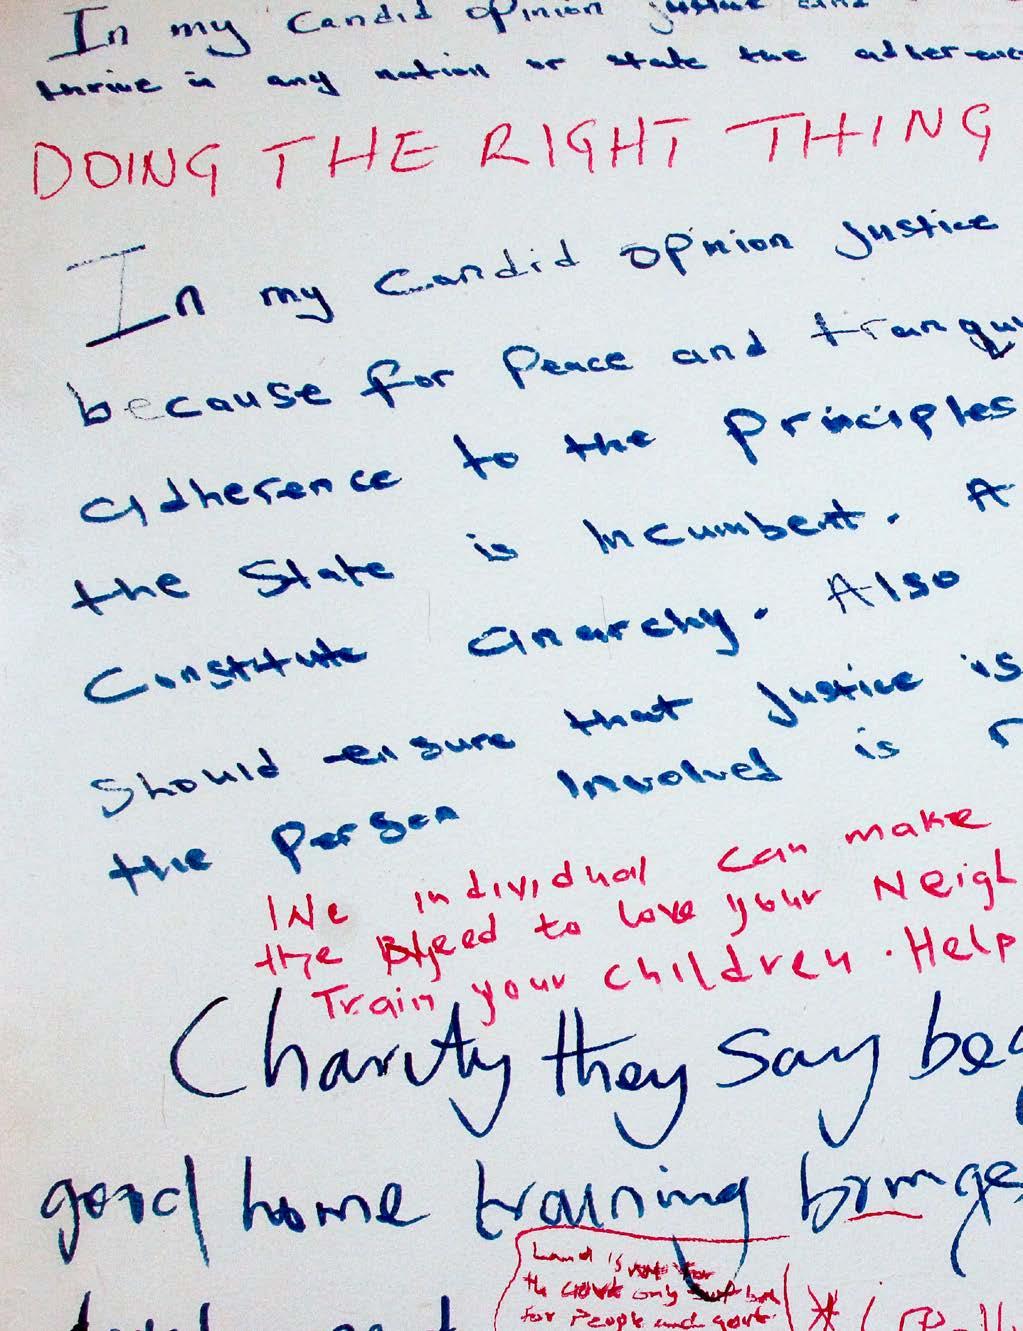 In my candid opinion justice and
thrive in any nation or state the adherenc
DOING THE RIGHT THING
In my candid opinion justice
because for peace and tranqui
adherence to the principles
the State is incumbent. A
Constitute anarchy. Also
Should ensure that justice is
the person involved is
We individual can make
the need to love your Neigh
Train your children. Help
Charity they say beg
good home training bringe
Land is not for
the govt only but
for people and govt